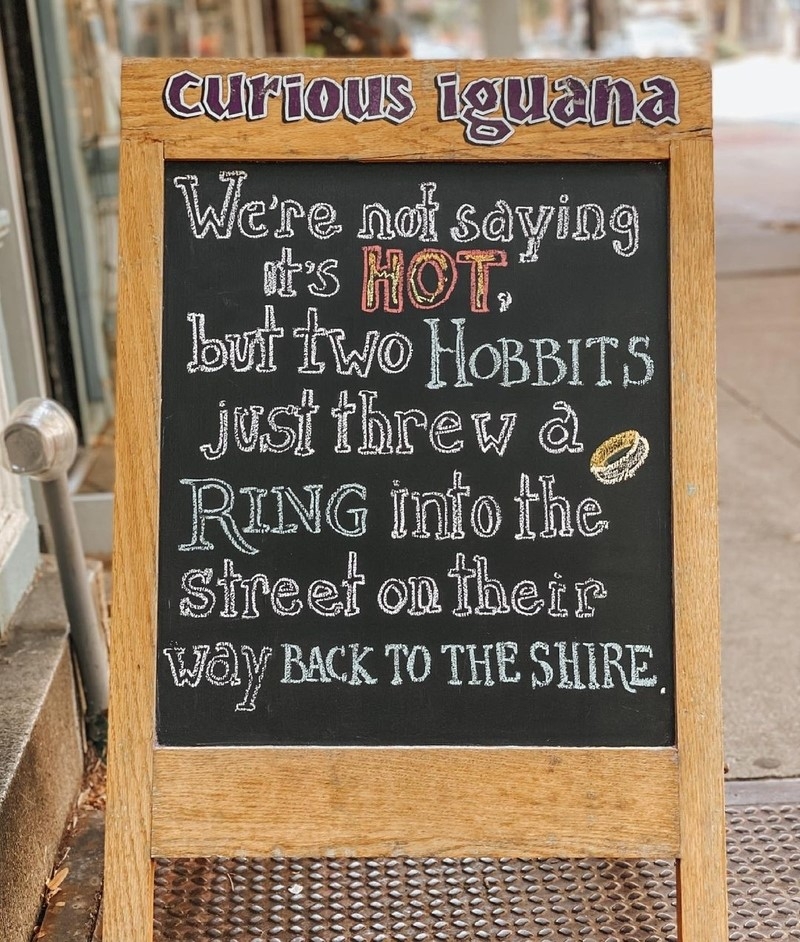 curious iguana
We're not saying
it's HOT,
but two HOBBITS
just threw a
RING into the
street on their
way BACK TO THE SHIRE.